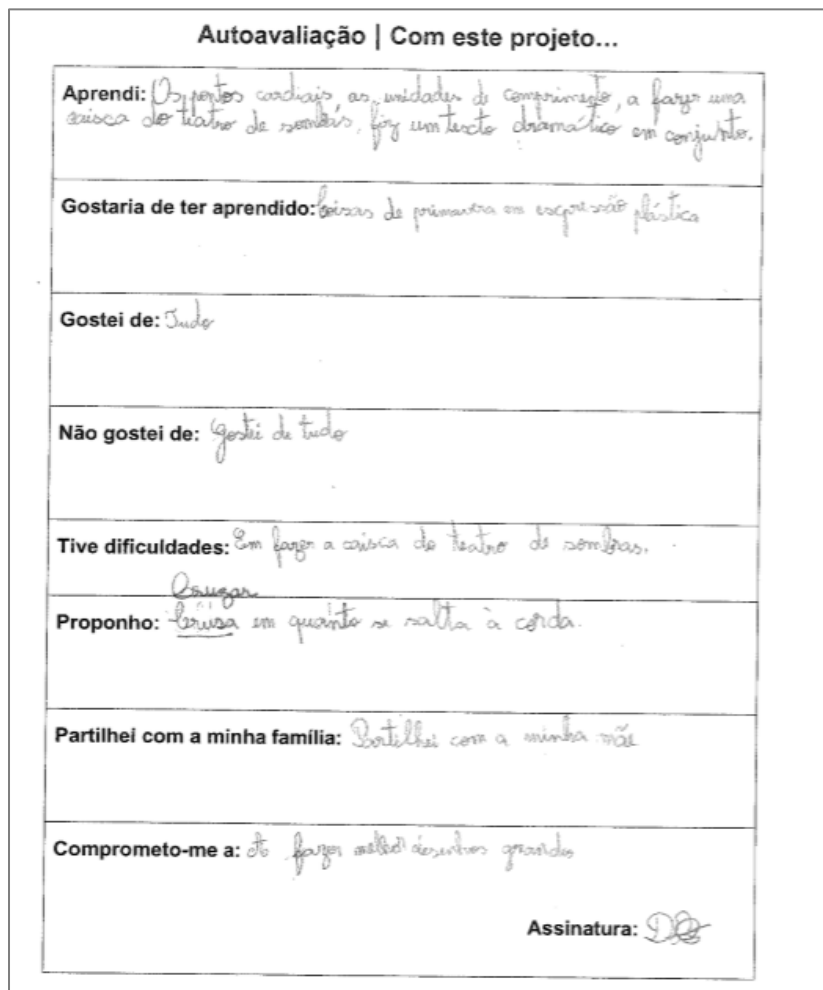 Autoavaliação | Com este projeto...
Aprendi: Os pontos cardiais, as unidades de comprimento, a fazer uma
caisca do teatro de sombras, fiz um texto dramático em conjunto.
Gostaria de ter aprendido: Coisas de primavera em escpressão plástica
Gostei de: Tudo
Não gostei de: Gostei de tudo
Tive dificuldades: Em fazer a caisca do teatro de sombras.
Proponho: em quanto se salta à corda.
Partilhei com a minha família: Partilhei com a minha mãe
Comprometo-me a: A fazer melhor desenhos grandes
Assinatura: